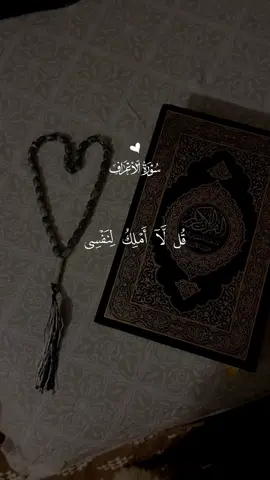 سُورَةُ الْأَعْرَافِ
قُل لَّآ أَمْلِكُ لِنَفْسِى